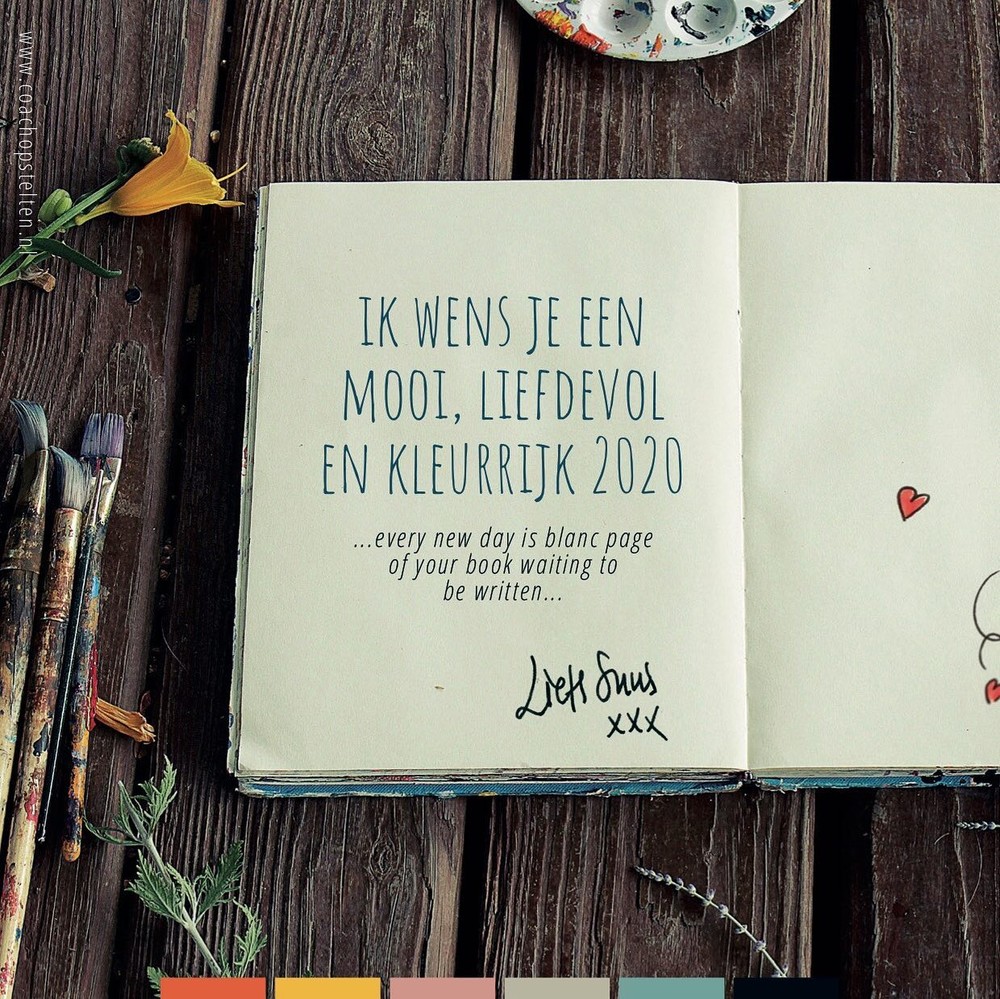 www.coachopstelten.nl
IK WENS JE EEN
MOOI, LIEFDEVOL
EN KLEURRIJK 2020
...every new day is blanc page
of your book waiting to
be written...
Liefs Suus
xxx